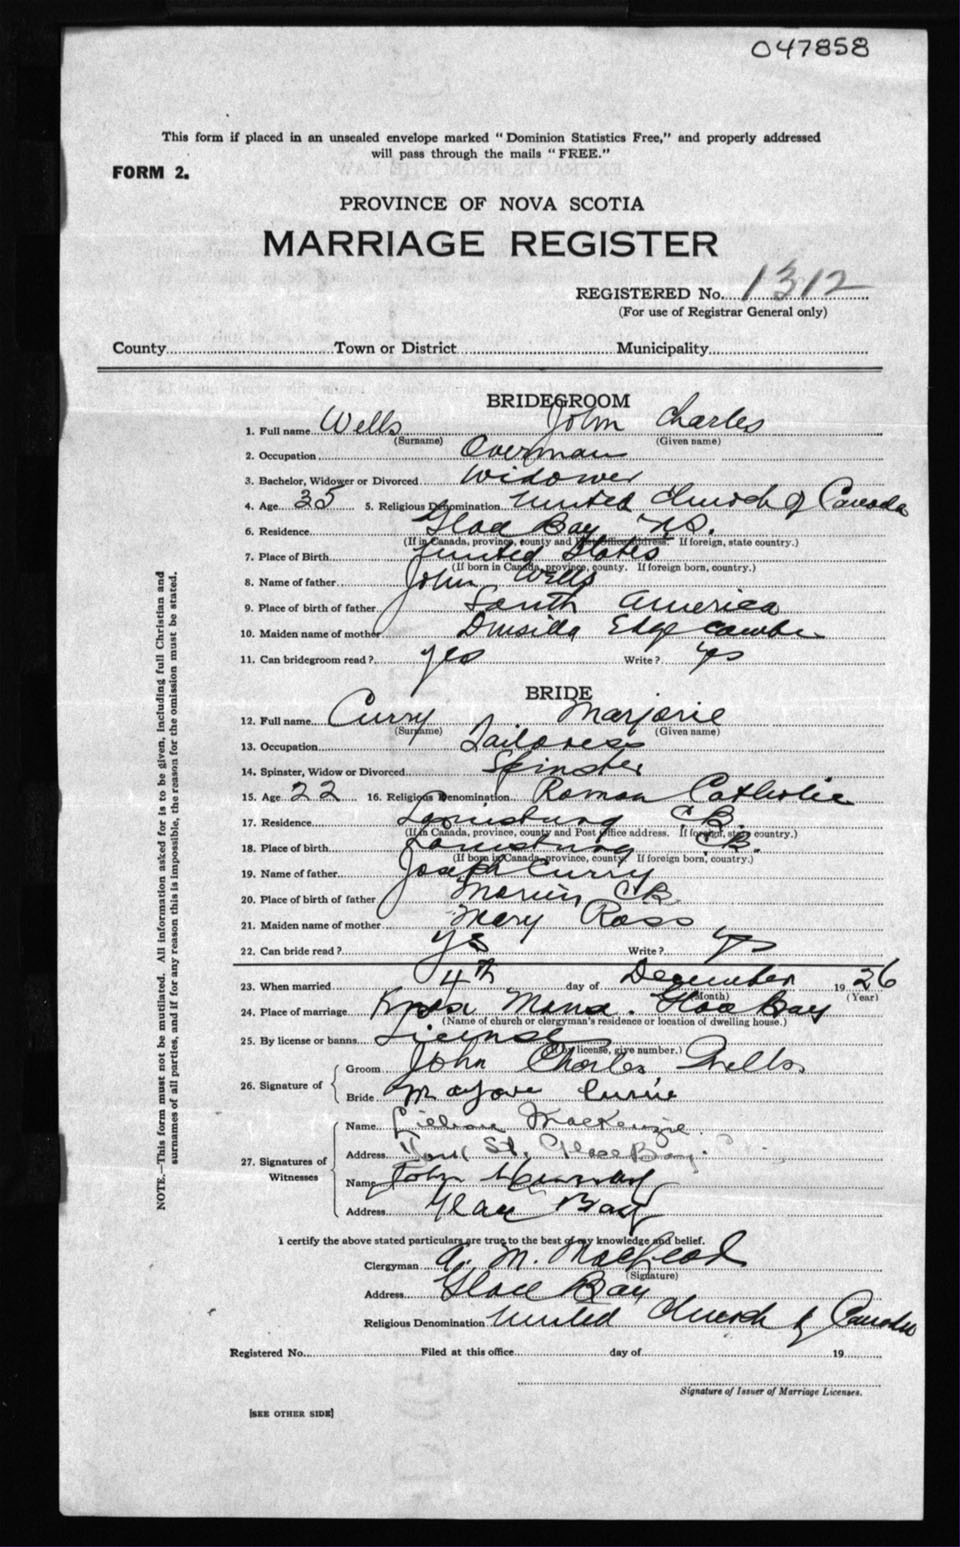 047858
This form if placed in an unsealed envelope marked "Dominion Statistics Free," and properly addressed
will pass through the mails "FREE."
FORM 2.
PROVINCE OF NOVA SCOTIA
MARRIAGE REGISTER
REGISTERED No. 1312
(For use of Registrar General only)
County Town or District Municipality
BRIDEGROOM
1. Full name Wells John Charles
(Surname) (Given name)
2. Occupation Overman
3. Bachelor, Widower or Divorced Widower
4. Age 35 5. Religious Denomination United Church of Canada
6. Residence Glace Bay N.S.
(If in Canada, province, county and Post Office address. If foreign, state country.)
7. Place of Birth United States
(If born in Canada, province, county. If foreign born, country.)
8. Name of father John Wells
9. Place of birth of father South America
10. Maiden name of mother Drusilla Edgecombe
11. Can bridegroom read? yes Write? yes
BRIDE
12. Full name Curry Marjorie
(Surname) (Given name)
13. Occupation Tailoress
14. Spinster, Widow or Divorced Spinster
15. Age 22 16. Religious Denomination Roman Catholic
17. Residence Louisburg C.B.
(If in Canada, province, county and Post Office address. If foreign, state country.)
18. Place of birth Louisburg C.B.
(If born in Canada, province, county. If foreign born, country.)
19. Name of father Joseph Curry
20. Place of birth of father C.B.
21. Maiden name of mother Mary Ross
22. Can bride read? yes Write? yes
23. When married 4th day of December 1926
(Month) (Year)
24. Place of marriage Glace Bay
(Name of church or clergyman's residence or location of dwelling house.)
25. By license or banns License
(If by license, give number.)
26. Signature of
Groom John Charles Wells
Bride Currie
27. Signatures of Witnesses
Name Lillian MacKenzie
Address St. Glace Bay.
Name John Murray
Address Glace Bay
I certify the above stated particulars are true to the best of my knowledge and belief.
Clergyman A. M. MacLeod
(Signature)
Address Glace Bay
Religious Denomination United Church of Canada
Registered No. Filed at this office day of 19
Signature of Issuer of Marriage Licenses.
[SEE OTHER SIDE]
NOTE.—This form must not be mutilated. All information asked for is to be given, including full Christian and
surnames of all parties, and if for any reason this is impossible, the reason for the omission must be stated.